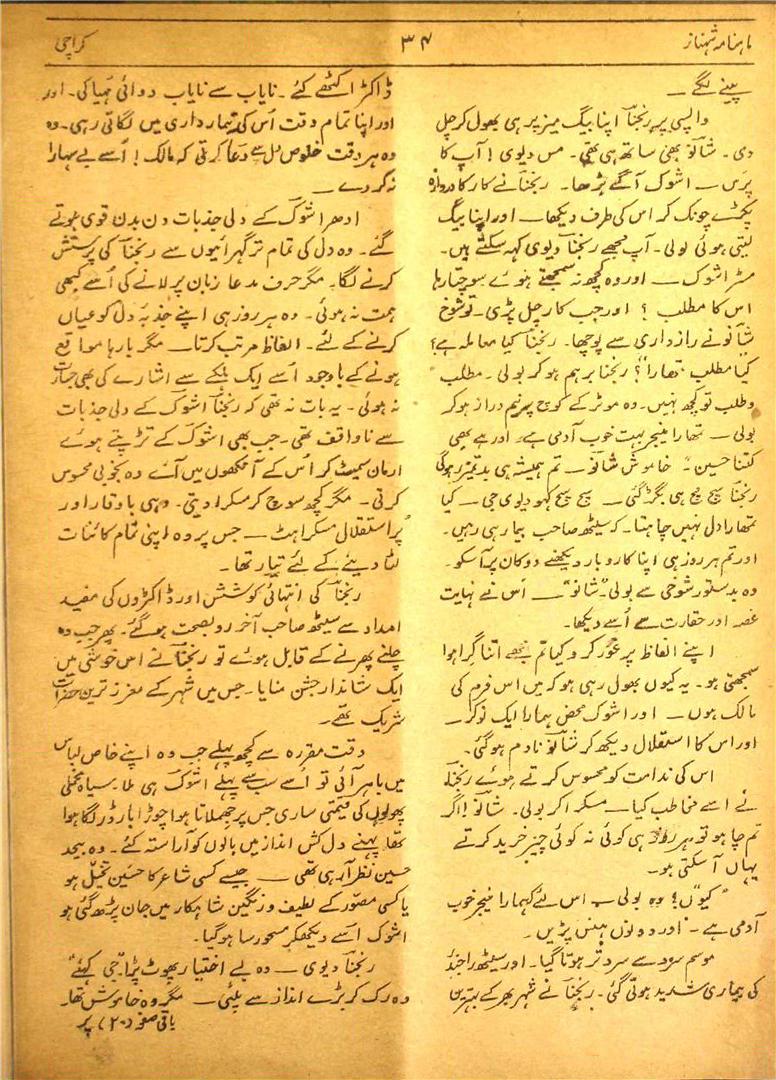 ماہنامہ شہناز
۳۴
کراچی
پینے لگے ـ
واپسی پر رنجنا اپنا بیگ میز پر ہی بھول کر چل
دی ۔ شانو بھی ساتھ ہی تھی ۔ مس دیوی ! آپ کا
پرس ـ اشوک آگے بڑھا ۔ رنجنا نے کار کا دروازہ
پکڑے چونک کر اس کی طرف دیکھا ـ اور اپنا بیگ
لیتی ہوئی بولی ۔ آپ مجھے رنجنا دیوی کہہ سکتے ہیں ۔
مسٹر اشوک ـ اور وہ کچھ نہ سمجھتے ہوئے سوچتا رہا
اس کا مطلب ؟ اور جب کار چل پڑی ـ تو شوخ
شانو نے رازداری سے پوچھا ۔ رنجنا کیا معاملہ ہے؟
کیا مطلب تمھارا"؟ رنجنا برہم ہو کر بولی ۔ مطلب
وطلب تو کچھ نہیں ۔ وہ موٹر کے کوچ پر نیم دراز ہو کر
بولی ـ تمھارا منیجر بہت خوب آدمی ہے ۔ اور ہے بھی
کتنا حسین ۔" خاموش شانو ـ تم ہمیشہ ہی بدتمیز رہوگی
رنجنا سچ مچ ہی بگڑ گئی ـ سچ سچ کہو دیوی جی ـ کیا
تمھارا دل نہیں چاہتا ۔ کہ سیٹھ صاحب بیمار ہی رہیں ۔
اور تم ہر روز ہی اپنا کاروبار دیکھنے دوکان پر آسکو ۔
وہ بدستور شوخی سے بولی ۔"شانو" ـ اس نے نہایت
غصہ اور حقارت سے اُسے دیکھا ۔
اپنے الفاظ پر غور کرو کیا تم مجھے اتنا گرا ہوا
سمجھتی ہو ۔ یہ کیوں بھول رہی ہو کہ میں اس فرم کی
مالک ہوں ـ اور اشوک محض ہمارا ایک نوکر ـ
اور اس کا استقلال دیکھ کر شانو نادم ہو گئی ۔
اس کی ندامت کو محسوس کرتے ہوئے رنجنا
نے اسے مخاطب کیا ـ مسکرا کر بولی ۔ شانو ! اگر
تم چاہو تو ہر روز ہی کوئی نہ کوئی چیز خرید کرتے
یہاں آ سکتی ہو ۔
"کیوں؟ وہ بولی ـ اس لئے کہ ہمارا منیجر خوب
آدمی ہے ـ" اور دونوں ہنس پڑیں ۔
موسم سرد سے سرد تر ہوتا گیا ۔ اور سیٹھ راجندر
کی بیماری شدید ہوتی گئی ۔ رنجنا نے شہر بھر کے بہترین
ڈاکٹر اکٹھے کئے ۔ نایاب سے نایاب دوائی مہیا کی ۔ اور
اور اپنا تمام وقت اُس کی تیمارداری میں لگاتی رہی ۔ وہ
وہ ہر وقت خلوص دل سے دعا کرتی کہ مالک ! اُسے بے سہارا
نہ کر دے ـ
ادھر اشوک کے دلی جذبات دن بدن قوی ہوتے
گئے ۔ وہ دل کی تمام تر گہرائیوں سے رنجنا کی پرستش
کرنے لگا ۔ مگر حرف مدعا زبان پر لانے کی اُسے کبھی
ہمت نہ ہوئی ۔ وہ ہر روز ہی اپنے جذبۂ دل کو عیاں
کرنے کے لئے ۔ الفاظ مرتب کرتا ـ مگر بارہا مواقع
ہونے کے باوجود اُسے ایک ہلکے سے اشارے کی بھی جسارت
نہ ہوئی ۔ یہ بات نہ تھی کہ رنجنا اشوک کے دلی جذبات
سے ناواقف تھی ـ جب بھی اشوک کے تڑپتے ہوئے
ارمان سمیٹ کر اس کے آنکھوں میں آئے وہ بخوبی محسوس
کرتی ۔ مگر کچھ سوچ کر مسکرا دیتی ۔ وہی باوقار اور
پُر استقلال مسکراہٹ ـ جس پر وہ اپنی تمام کائنات
لٹا دینے کے لئے تیار تھا ۔
رنجنا کی انتہائی کوشش اور ڈاکٹروں کی مفید
امداد سے سیٹھ صاحب آخر رو بصحت ہو گئے ۔ پھر جب وہ
چلنے پھرنے کے قابل ہوئے تو رنجنا نے اس خوشی میں
ایک شاندار جشن منایا ۔ جس میں شہر کے معزز ترین حضرات
شریک تھے ۔
وقت مقررہ سے کچھ پہلے جب وہ اپنے خاص لباس
میں باہر آئی تو اُسے سب سے پہلے اشوک ہی ملا ۔ سیاہ مخملی
پھولوں کی قیمتی ساری جس پر جھلملاتا ہوا چوڑا بارڈر لگا ہوا
تھا پہنے دل کش انداز میں بالوں کو آراستہ کئے ۔ وہ بیحد
حسین نظر آ رہی تھی ـ جیسے کسی شاعر کا حسین تخیل ہو
یا کسی مصور کے لطیف و رنگین شاہکار میں جان پڑ گئی ہو
اشوک اُسے دیکھکر مسحور سا ہو گیا ۔
رنجنا دیوی ـ وہ بے اختیار پھوٹ پڑا ۔"جی کہئے"
وہ رک کر بڑے انداز سے پلٹی ـ مگر وہ خاموش تھا ۔
باقی صفحہ (۲۰) پر